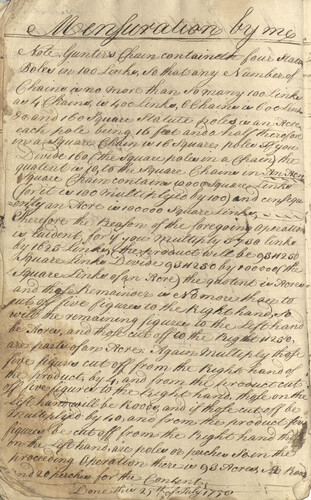 Mensuration by me
Note Gunters Chain containeth four Statute
Poles in 100 Links, So that any Number of
Chains is no more than So many 100 Links
as 4 Chains, is 400 Links, 6 Chains is 600 Links
and 160 Square Statute poles is an Acre
each pole being 16 feet and a half therefore
in a Square Chain is 16 Square poles if you
Divide 160 (the Square poles in a Chain) the
quotient is 10 the Square Chains in An Acre
Square Chain contain 10000 Square Links
(for it is 100 multiplyed by 100) and consequ
ently an Acre is 100000 Square Links,
Therefore the Reason of the foregoing Operation
is Evident, for if you Multiply 5750 links
by 1625 Links, the product will be 9343750
Square Links Divide 9343750 by 100000 (the
Square Links of an Acre) the quotient is Acres
and those Remainder is No more than to
cut off five figures to the Right hand, So
will the remaining figures to the Left hand
be Acres, and those cut off to the Right
are parts of an Acre. Again Multiply those
five figures cut off from the Right hand of
the product, by 4, and from the product cut
off five figures to the Right hand, those on the
Left hand will be Roods, and if those cut off be
multiplied by 40, and from the product five
figures be cut off from the Right hand those
on the Left hand, are poles or perches So in the
preceeding Operation there is 93 Acres,
and 20 perches for the Content
Done this 25th of July 1750